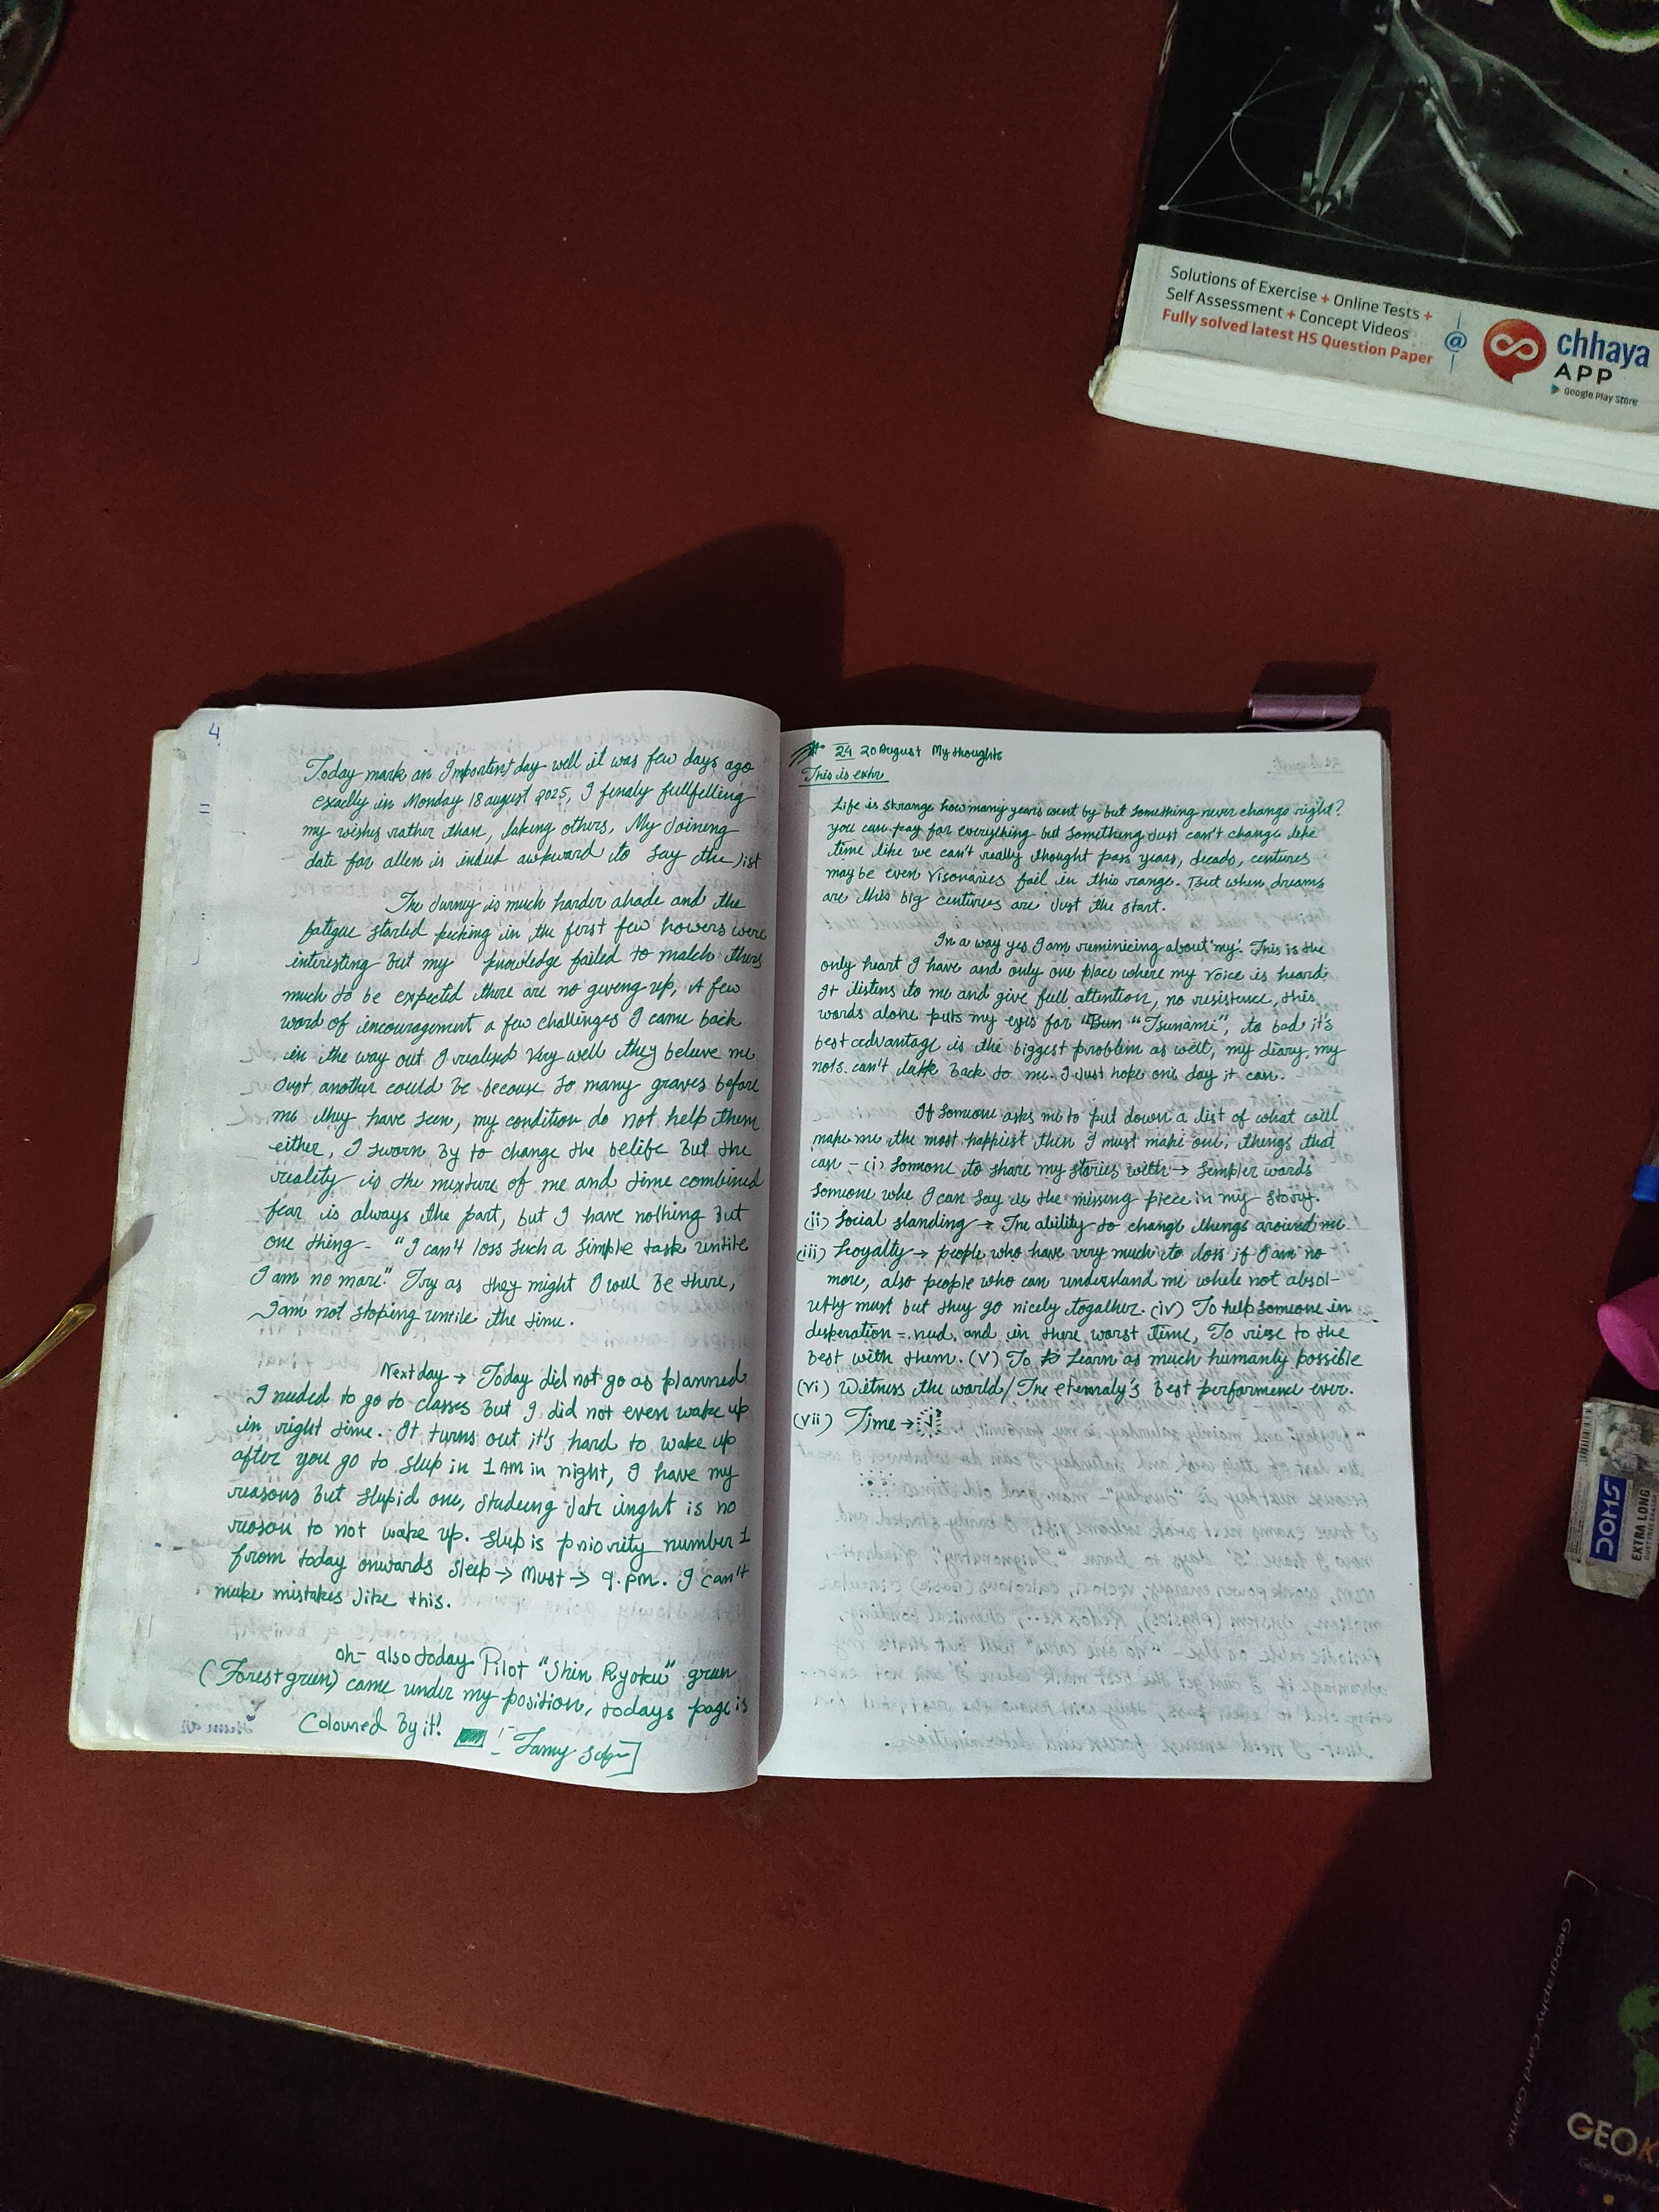 Solutions of Exercise + Online Tests +
Self Assessment + Concept Videos
Fully solved latest HS Question Paper
@
chhaya
APP
Google Play Store
4
Today mark an Importent day well it was few days ago
exaclly in Monday 18 august 2025, I finaly fullfelling
my wishes rather than, taking others, My Joining
date for allen is indeed awkward to say the list
The Jurney is much harder ahade and the
fatigue started pecking in the first few howers were
interesting but my knowledge failed to match
much to be expected there are no geveng up, A few
word of encouragement a few challenges I came back
in the way out I realised very well they beleve me
Just another could be becouse so many graves before
me they have seen, my condition do not help them
either, I sworn by to change the belife but the
reality is the mixture of me and time combined
fear is always the part, but I have nothing but
one thing - "I can't loss such a simple task untile
I am no more." Try as they might I will be there,
I am not stoping untile the time.
Next day → Today did not go as planned
I needed to go to classes but I did not even wake up
in right time. It turns out it's hard to wake up
after you go to sleep in 1 AM in night, I have my
reasons but stupid one, studeing late is no
reason to not wake up. Sleep is priority number 1
from today onwards Sleep → Must → 9. pm. I can't
make mistakes like this.
oh- also today Pilot "Shin Ryoku" green
(Forest green) came under my position, todays page is
Coloured By it!
24 20 August My thoughts
This is extr
Life is strange how many years went by but something never change right?
you can pay for everything but something Just can't change like
time like we can't really thought pass years, decads, centures
may be even visonaries fail in this range. But when dreams
are this big centuries are Just the start.
In a way yes I am reminicing about 'my'. This is the
only heart I have and only one place where my voice is heard.
It listens to me and give full attention, no resistence, this
words alone puts my eyes for "Tsunami", to bad it's
best advantage is the biggest problem as well, my diary, my
can't back to me. I Just hope one day it can.
If someone asks me to put down a list of what will
make me the most happiest then I must make one, things that
can - (i) Someone to share my stories with → Simpler words
Someone who I can say is the missing piece in my story.
(ii) Social standing → The ability to change things around me.
(iii) Loyalty → people who have very much to loss if I am no
more, also people who can understand me while not absol-
utly must but they go nicely togather. (iv) To help someone in
desperation and in there worst time, To riese to the
best with them. (v) To Learn as much humanly possible
(vi) Witness the world/The best ever.
(vii) Time →
DOMS
EXTRA LONG
DUST FREE ERASER
Geography Card Game
GEO